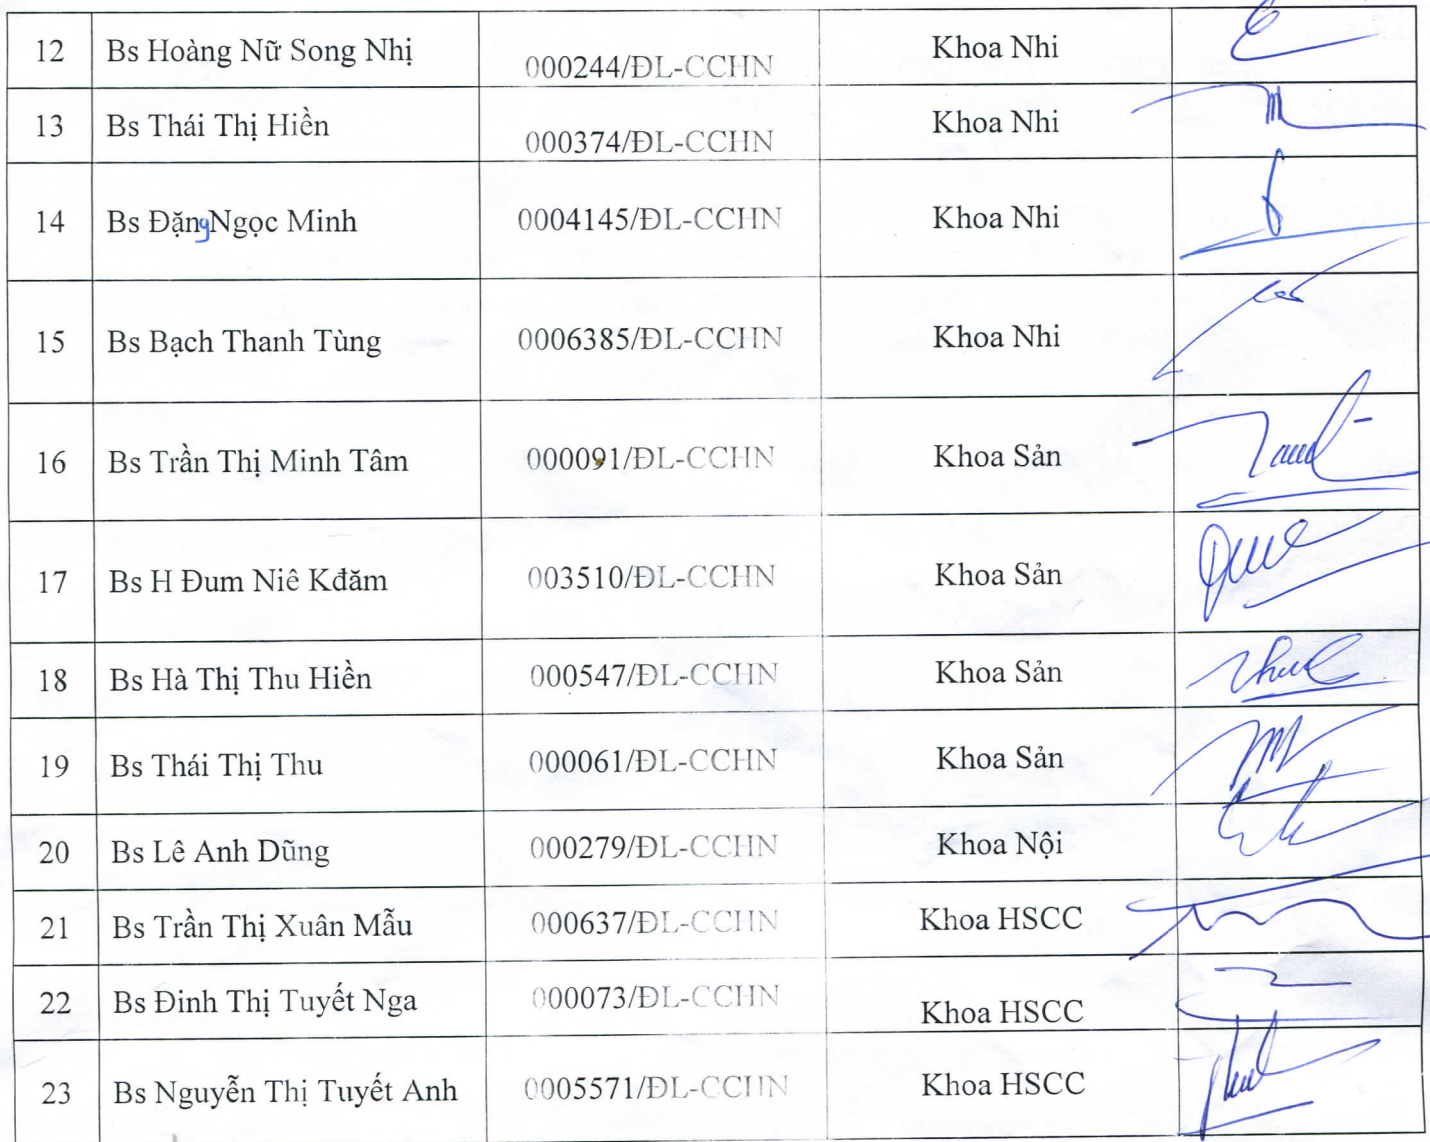 12 Bs Hoàng Nữ Song Nhị 000244/ĐL-CCHN Khoa Nhi
13 Bs Thái Thị Hiền 000374/ĐL-CCHN Khoa Nhi
14 Bs Đặng Ngọc Minh 0004145/ĐL-CCHN Khoa Nhi
15 Bs Bạch Thanh Tùng 0006385/ĐL-CCHN Khoa Nhi
16 Bs Trần Thị Minh Tâm 000091/ĐL-CCHN Khoa Sản
17 Bs H Đum Niê Kđăm 003510/ĐL-CCHN Khoa Sản
18 Bs Hà Thị Thu Hiền 000547/ĐL-CCHN Khoa Sản
19 Bs Thái Thị Thu 000061/ĐL-CCHN Khoa Sản
20 Bs Lê Anh Dũng 000279/ĐL-CCHN Khoa Nội
21 Bs Trần Thị Xuân Mẫu 000637/ĐL-CCHN Khoa HSCC
22 Bs Đinh Thị Tuyết Nga 000073/ĐL-CCHN Khoa HSCC
23 Bs Nguyễn Thị Tuyết Anh 0005571/ĐL-CCHN Khoa HSCC